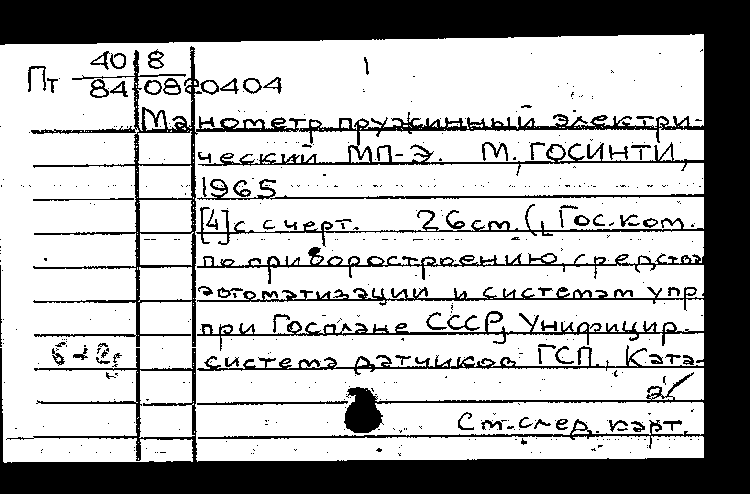 40 8
1
Пт
84-0820404
Манометр пружинный электри-
ческий МП-Э. М., ГОСИНТИ,
1965
[4] с. с черт. 26 см. ([Гос. ком.
по приборостроению, средствам
автоматизации и системам упр.
при Госплане СССР]. Унифицир.
система датчиков ГСП., Ката-
См. след. карт.